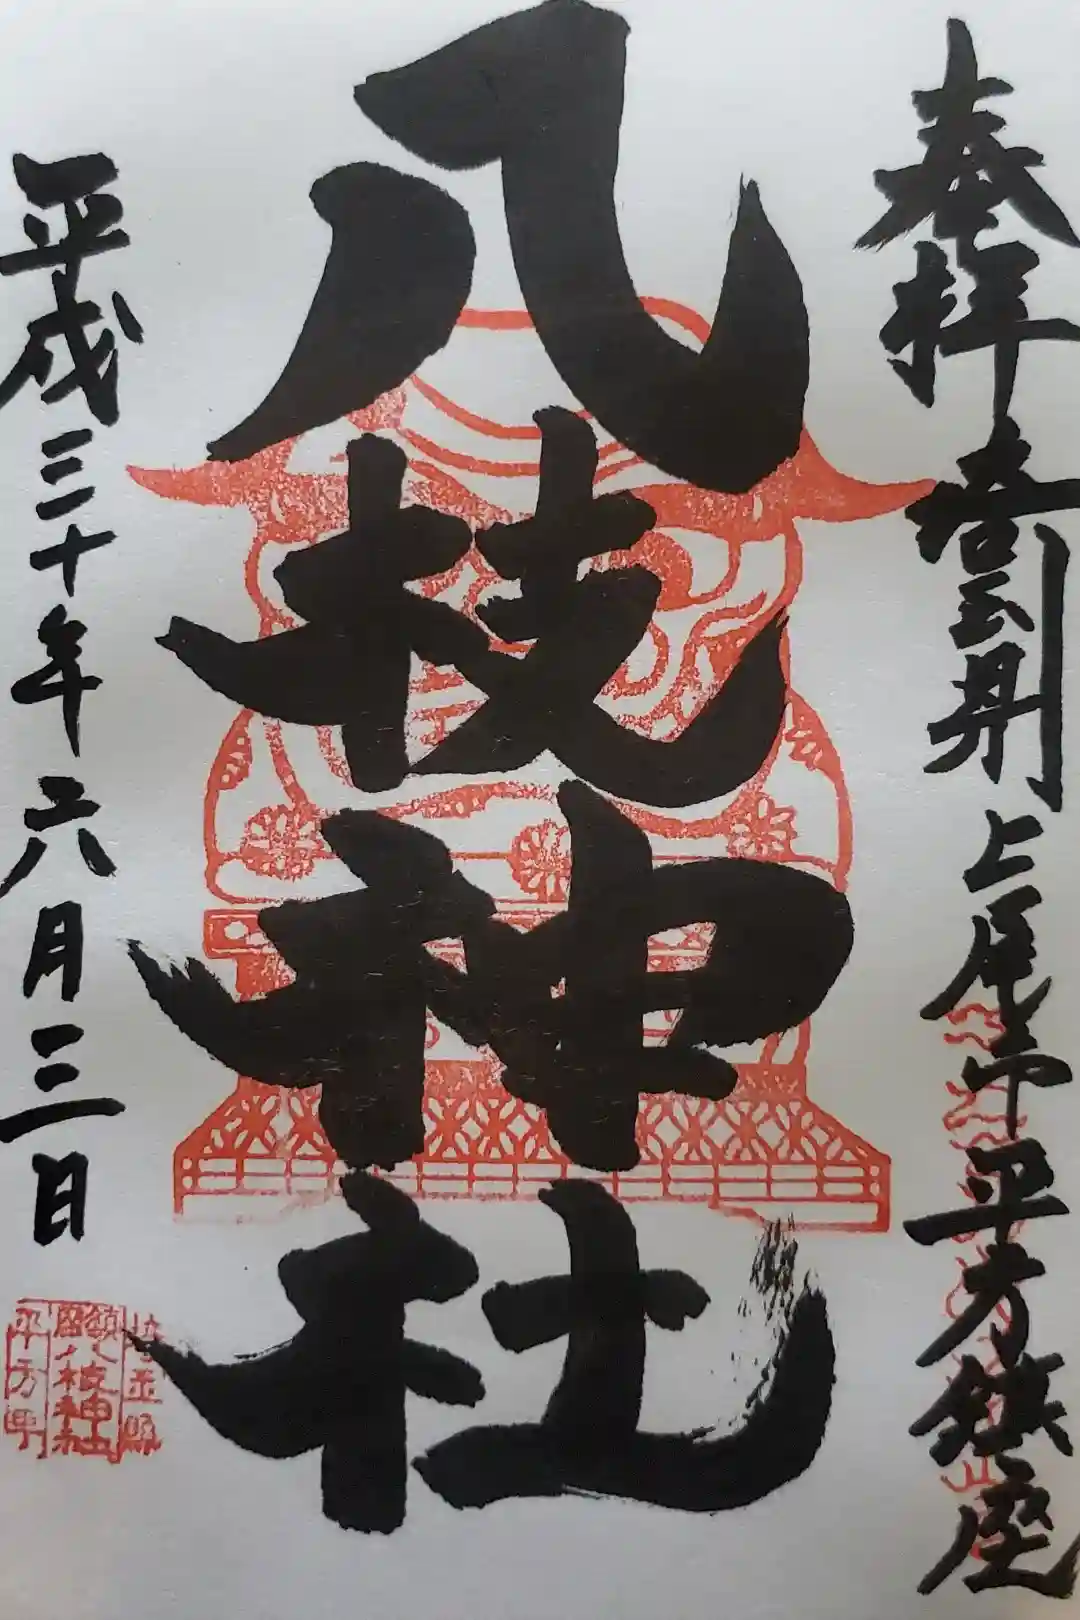 奉拝 上尾市平方鎮座
八枝神社
平成三十年六月三日
埼玉縣
八枝神社
平方